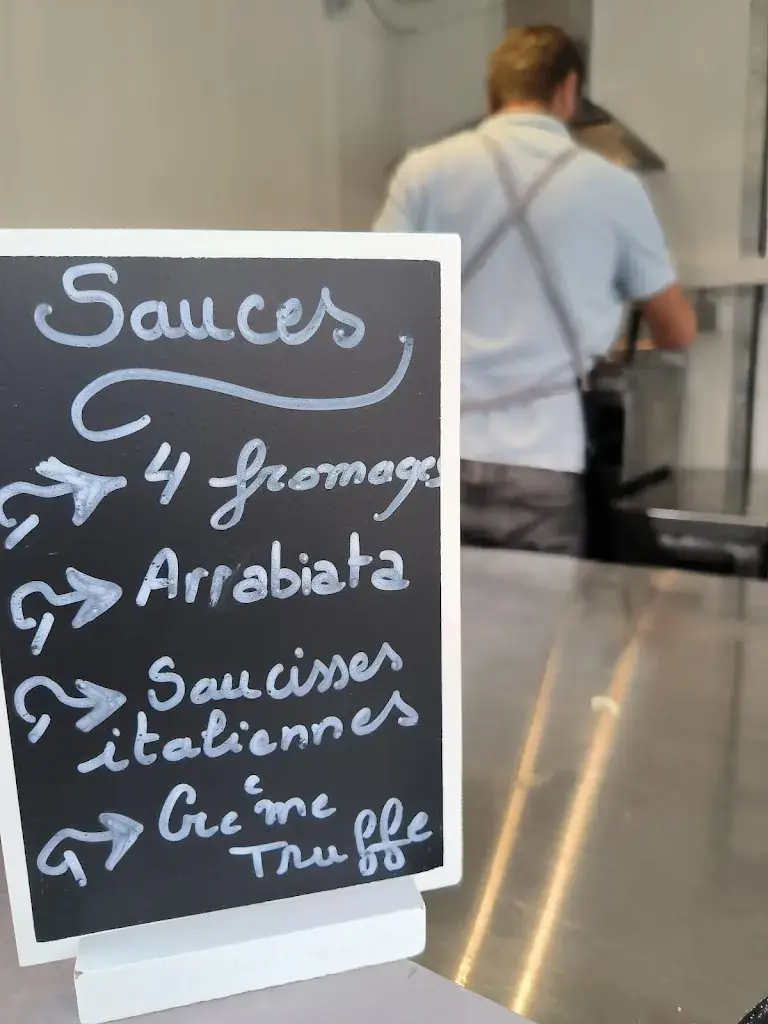 Sauces
4 fromages
Arrabiata
Saucisses
italiennes
Crème
Truffe